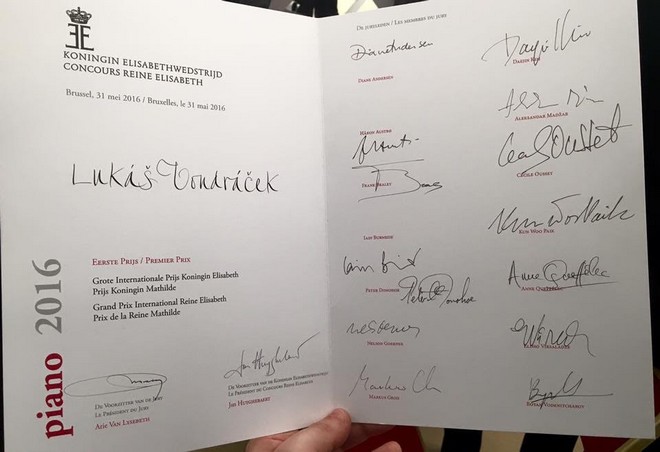 KONINGIN ELISABETHWEDSTRIJD
CONCOURS REINE ELISABETH
Brussel, 31 mei 2016 / Bruxelles, le 31 mai 2016
Lukáš Vondráček
piano 2016
Eerste Prijs / Premier Prix
Grote Internationale Prijs Koningin Elisabeth
Prijs Koningin Mathilde
Grand Prix International Reine Elisabeth
Prix de la Reine Mathilde
Jan Huyghebaert
De Voorzitter van de Jury
Le Président du Jury
Arie Van Lysebeth
De Voorzitter van de Koningin Elisabethwedstrijd
Le Président du Concours Reine Elisabeth
Jan Huyghebaert
De juryleden / Les membres du jury
Diane Andersen
Diane Andersen
Håkon Austbø
Frank Braley
Ian Bohnen
Peter Donohoe
Peter Donohoe
Nelson Goerner
Markus Groh
Dazun
Aleksandar Madžar
Cécile Ousset
Cécile Ousset
Kun Woo Paik
Kun Woo Paik
Anne Queffélec
Anne Queffélec
Elisso Virsaladze